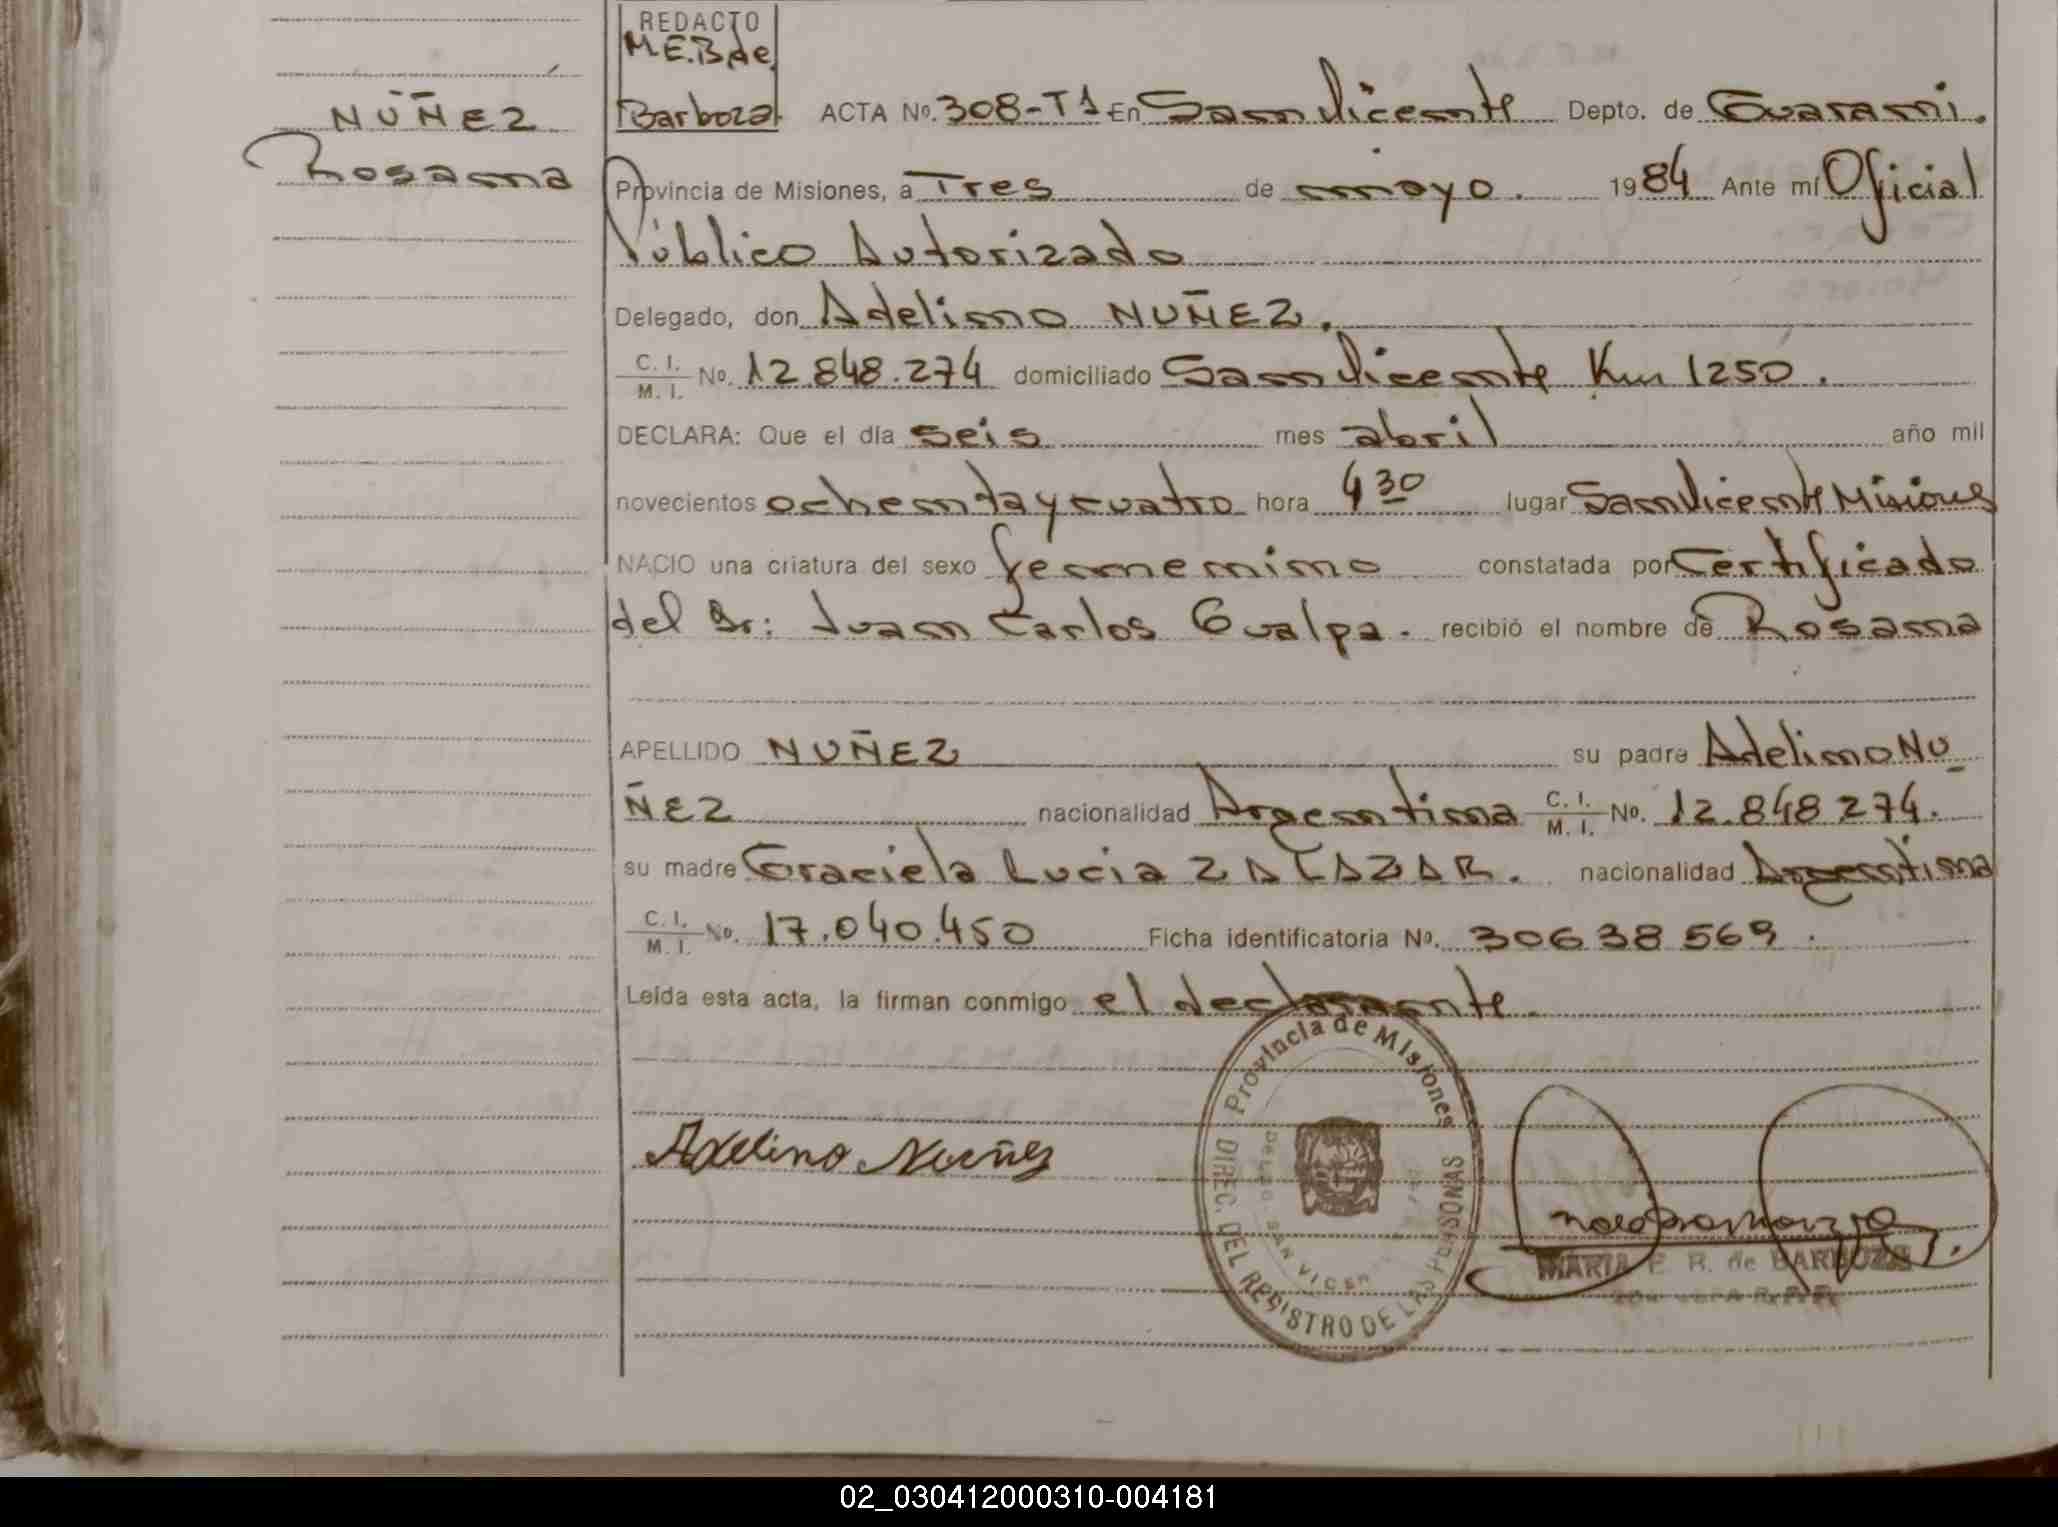 REDACTO
M.E.B de
Barboza
NÚÑEZ
Rosana
ACTA No. 308-T1 En San Vicente Depto. de Guaraní.
Provincia de Misiones, a Tres de mayo. 1984 Ante mí Oficial
Público Autorizado
Delegado, don Adelino NUÑEZ.
C. I. / M. I. No. 12.848.274 domiciliado San Vicente Km 1250.
DECLARA: Que el día seis mes abril año mil
novecientos ochenta y cuatro hora 4 30 lugar San Vicente Misiones
NACIO una criatura del sexo femenino constatada por Certificado
del Dr: Juan Carlos Gualpa. recibió el nombre de Rosana
APELLIDO NUÑEZ su padre Adelino NU
ÑEZ nacionalidad Argentina C. I. / M. I. No. 12.848 274.
su madre Graciela Lucia ZALAZAR. nacionalidad Argentina
C. I. / M. I. No. 17.040.450 Ficha identificatoria No. 30638569.
Leída esta acta, la firman conmigo el declarante.
Adelino Nuñez
Provincia de Misiones
DIREC. DEL REGISTRO DE LAS PERSONAS
SAN VICEN
MARIA E. B. de BARBOZA
02_030412000310-004181